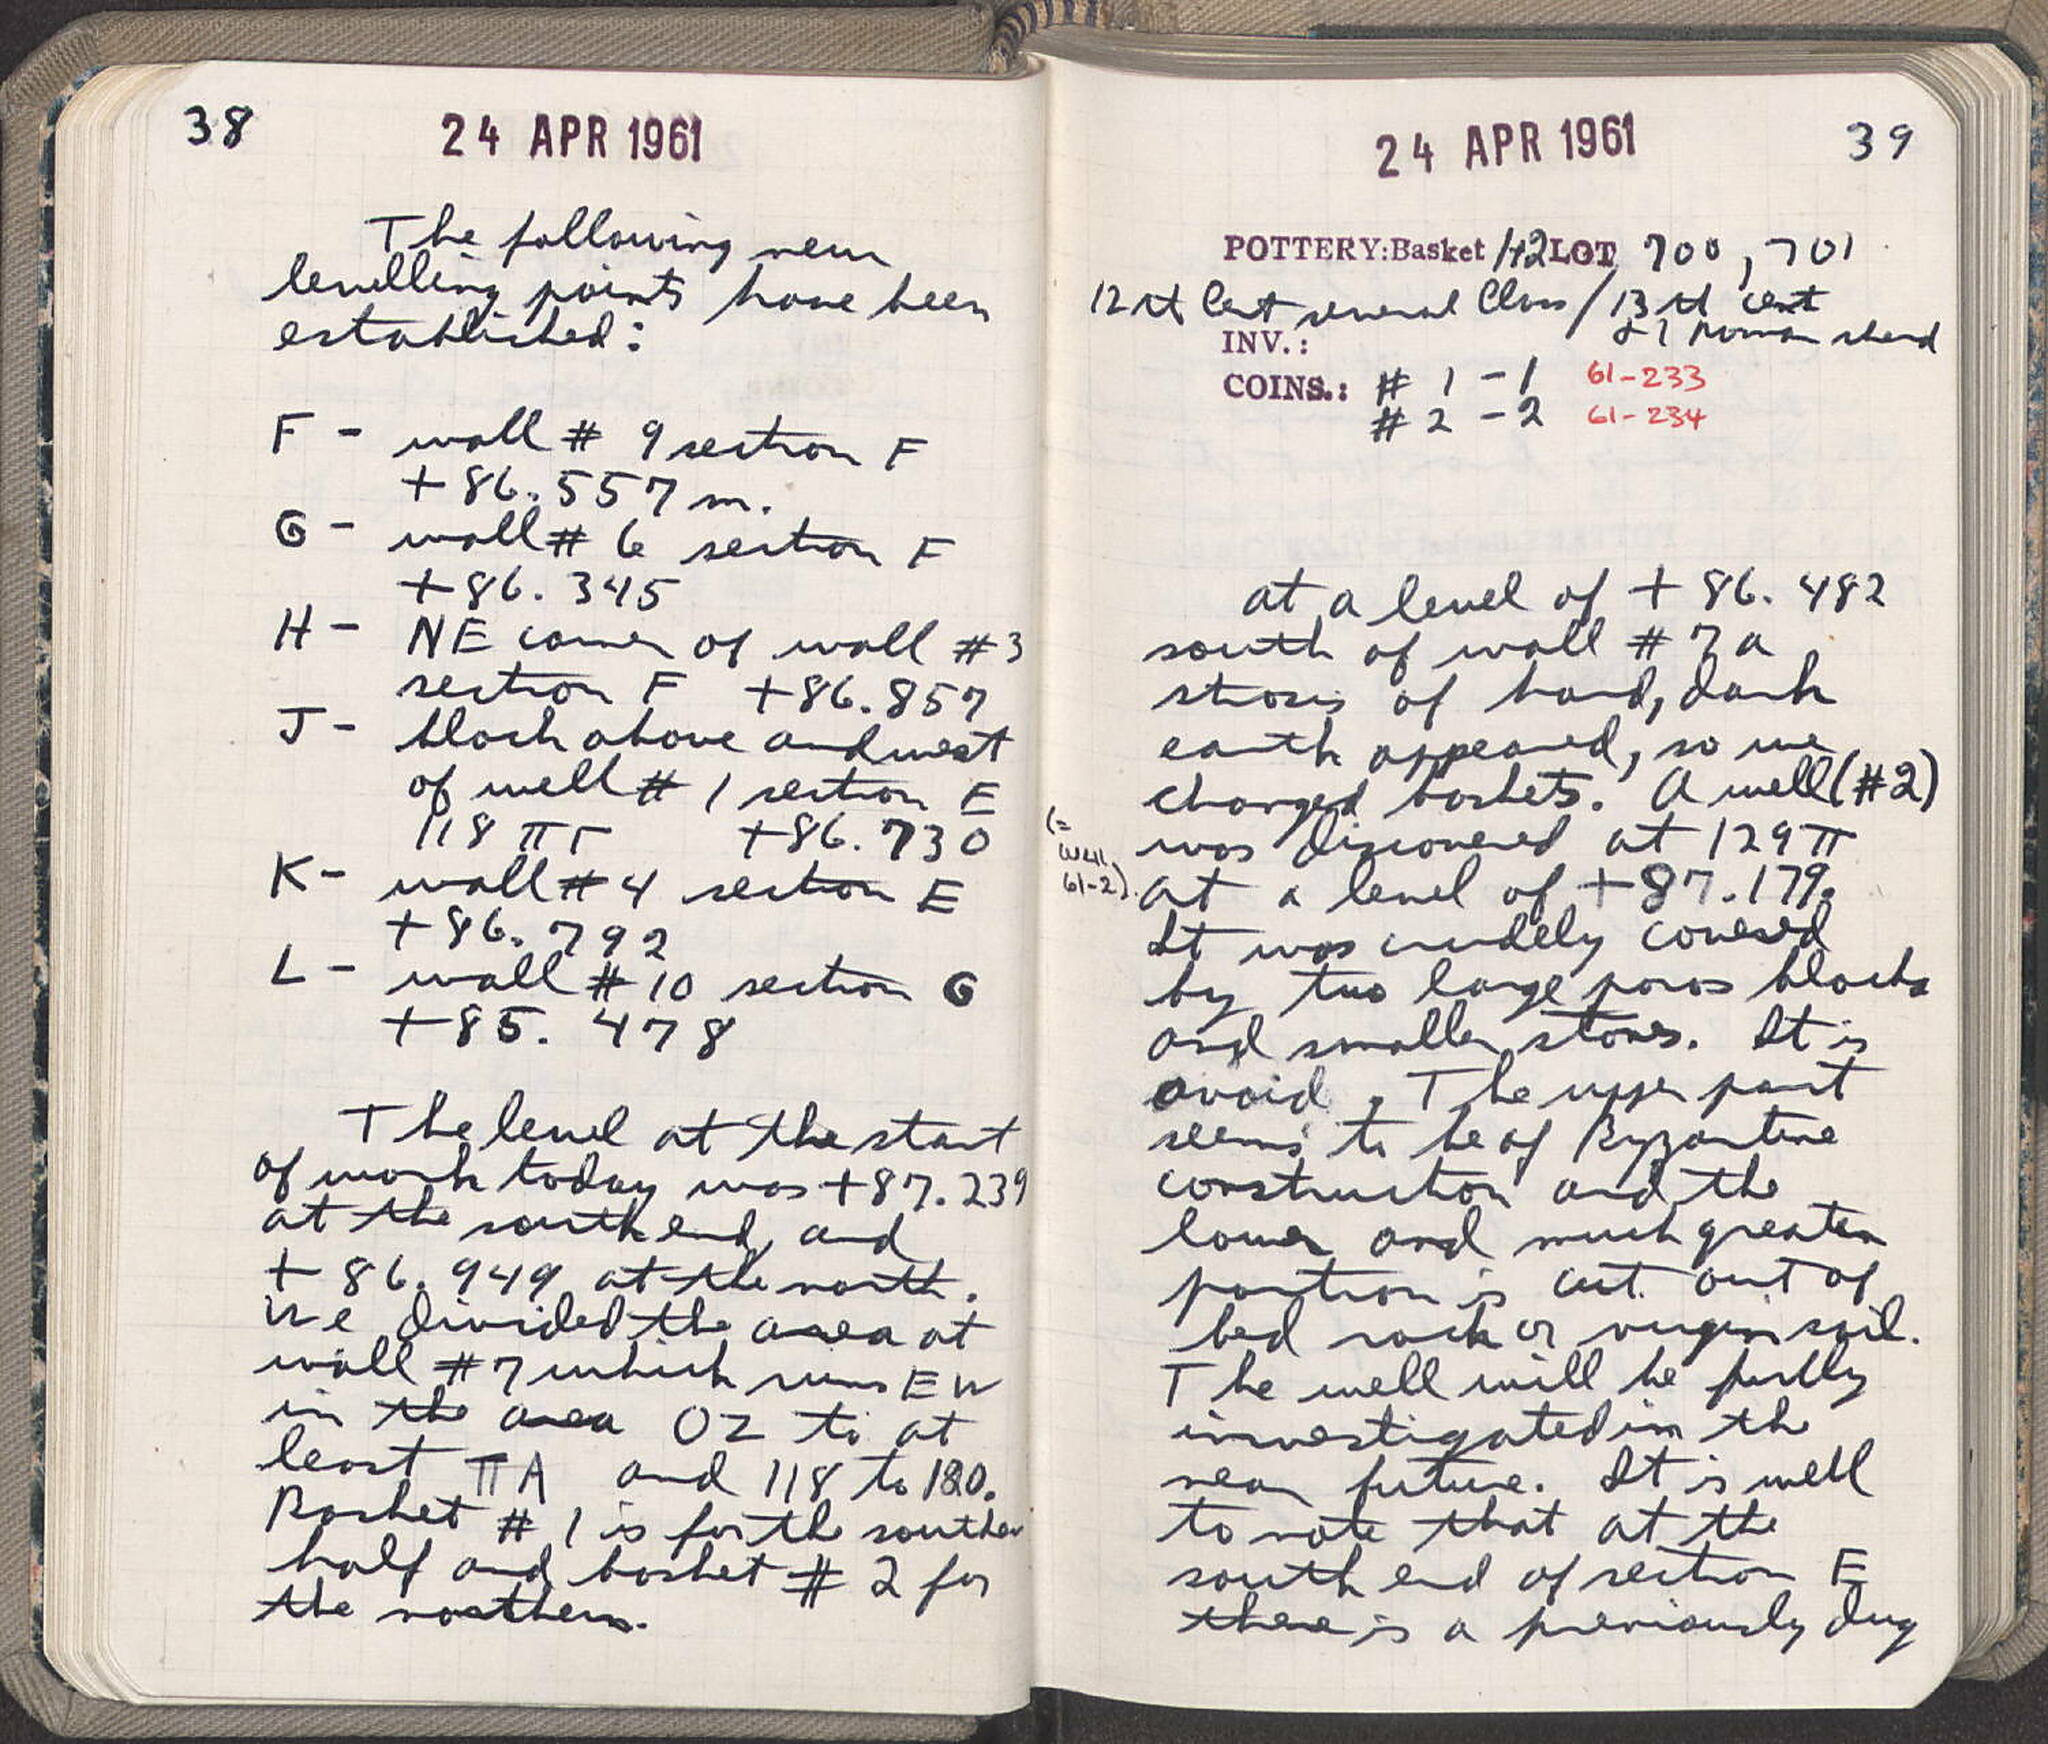 38
24 APR 1961
The following new
levelling points have been
established:
F - wall # 9 section F
+86.557 m.
G - wall # 6 section F
+86.345
H - NE corner of wall #3
section F +86.857
J - block above and west
of well # 1 section E
118 ΠΓ +86.730
K - wall # 4 section E
+86.792
L - wall # 10 section G
+85.478
The level at the start
of work today was +87.239
at the south end, and
+86.949 at the north.
We divided the area at
wall #7 which runs EW
in the area OZ to at
least ΠA and 118 to 120.
Basket # 1 is for the southern
half and basket # 2 for
the northern.
24 APR 1961
39
POTTERY: Basket 1+2 LOT 700, 701
12th Cent several Class / 13th cent
& 1 Roman sherd
INV.:
COINS.: # 1 - 1 61-233
# 2 - 2 61-234
at a level of +86.482
south of wall # 7 a
strosis of hard, dark
earth appeared, so we
changed baskets. A well (#2)
was discovered at 129 Π
(=
well
61-2)
at a level of +87.179.
It was crudely covered
by two large poros blocks
and smaller stones. It is
ovoid. The upper part
seems to be of Byzantine
construction and the
lower and much greater
portion is cut out of
bed rock or virgin soil.
The well will be fully
investigated in the
near future. It is well
to note that at the
south end of section E
there is a previously dug